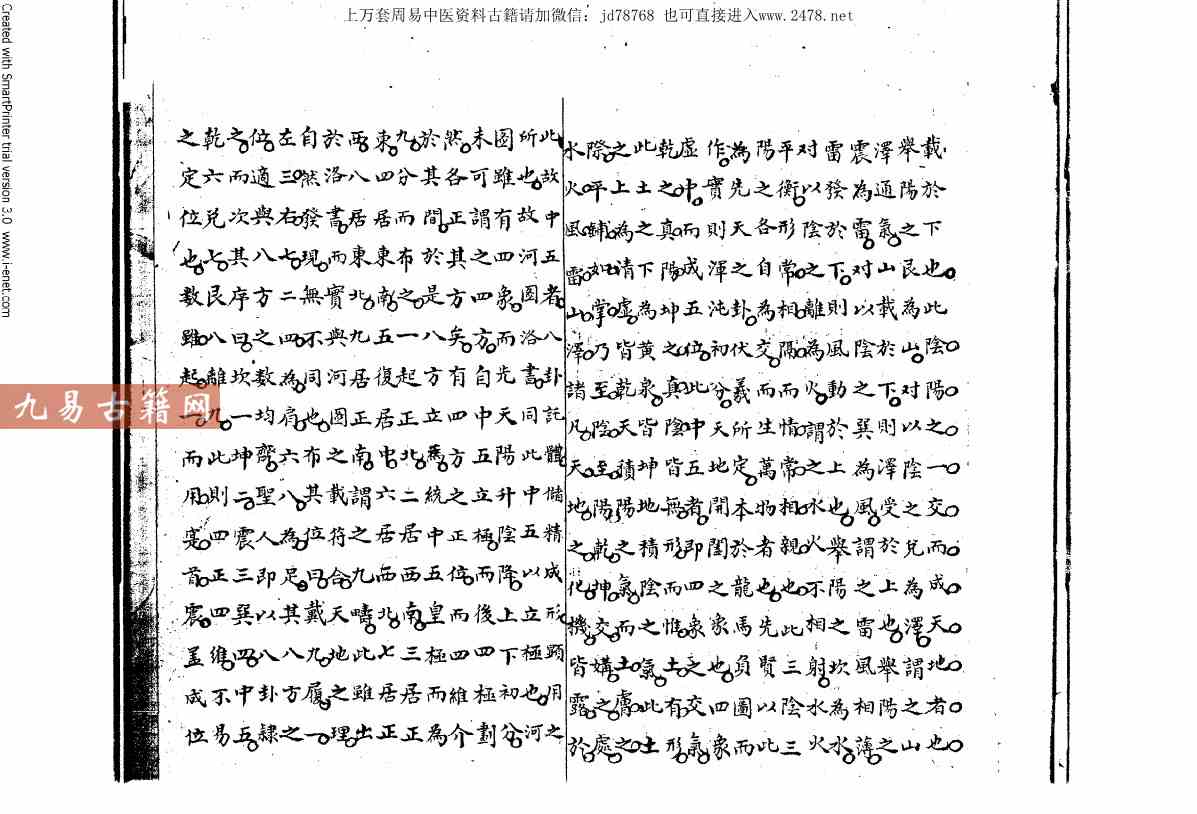 上万套周易中医资料古籍请加微信：jd78768 也可直接进入www.2478.net
Created with SmartPrinter trial version 3.0 www.i-enet.com
載於下也此陰陽之一交而成天地者也
舉陽之艮為山對以陰之兌為澤謂之山
澤通氣山載於下則澤受於上也舉陽之
震為雷對以陰之巽為風謂之雷風相薄
雷發於下則風動於上也舉陽之坎為水
對以陰之離為火謂之水火不相射水火
平衡形常相隔而情常相親也此三陰三
陽之各自為交而生萬物者也先賢以此
為先天之卦伏羲所定本於龍馬負圖而
作實則渾沌初分天地開闔之象也四象
虛中而成五位此中五者即四象之交氣
乾之真陽坤之真陰皆無形而惟土有形
此土之下為黃泉皆坤地積陰之氣此土
之上為清虛皆乾天積陽之氣而土膚之
際平鋪如掌乃至陰至陽乾坤交媾之處
水火風雷山澤諸凡天地之化機皆露於
此故中五者八卦託體儲精成形顕用之
所也故河圖洛書同此中五以立極也河
圖雖有四象而先天陽升陰降上下初分
未可謂之四方自中五立極而後四極劃
然各正其方矣有四方之正位而四維介
於其間於是八方立焉統中五皇極而為
九分而布之一起正北二居西南三居正
東四居東南五復居中六居西北七居正
兩八居東北九居正南謂之九疇此雖出
於洛書而實與河圖之載符合天地之理
自然發現無不同也布其位曰戴九履一
左三右七二四為肩六八為足其八方之
位適與八方之數均齊聖人即以八卦隷
之而次其序曰坎一坤二震三巽四中五
乾六兌七艮八離九此則四正四維不易
之定位也數雖起一而用寔首震蓋成位
九易古籍网